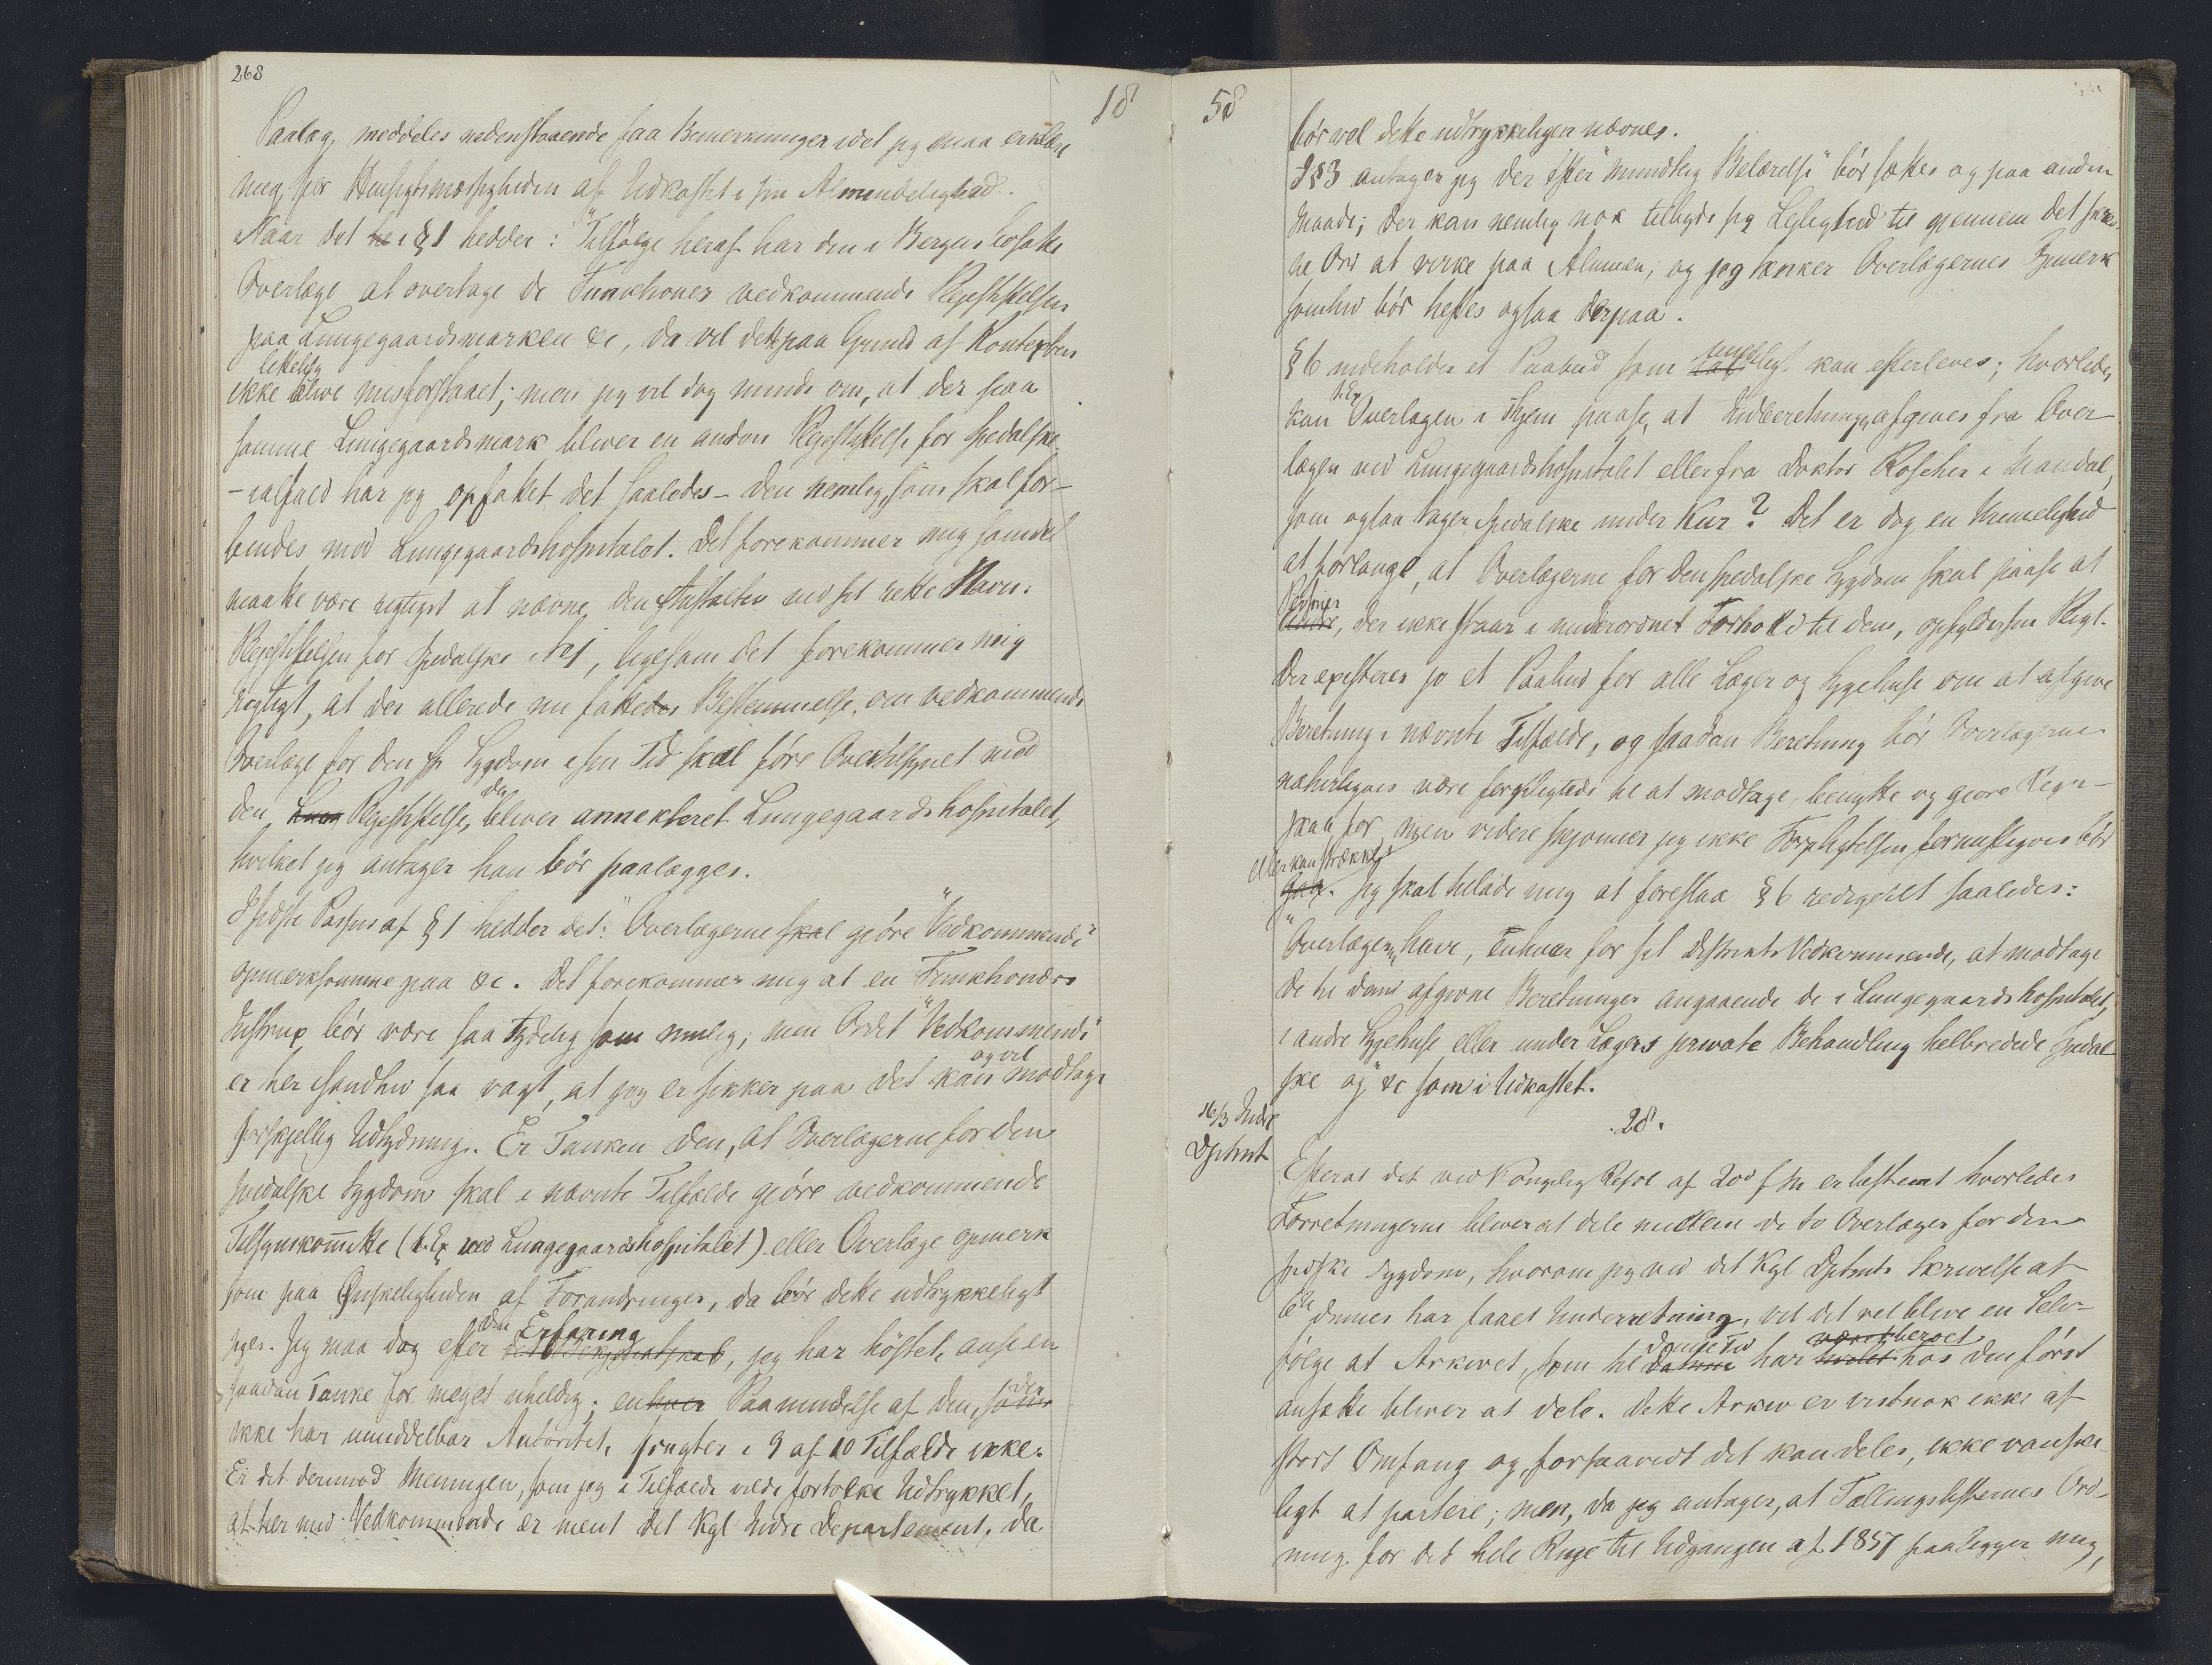 268
18
Paalæg, meddeles nedenstaaende faa Bemerkninger idet jeg maa erklære
mig for Hensigtsmæssigheden af Udkastet i sin Almindelighed.
Naar det he i § 1 hedder: "Tilfølge heraf har den i Bergen bosatte
Overlæge at overtage de Funkhoner vedkommende Plejestiftelsen
paa Lungegaardsmarken &c, da vil dette paa Grund af Kontexten
lettelig
ikke blive misforstaaet; men jeg vil dog minde om, at der paa
samme Lungegaardsmark bliver en anden Plejestiftelse for Spedalske
- ialfald har jeg opfattet det saaledes - den nemlig, som skal for-
bindes med Lungegaardshospitalet. Det forekommer mig som det
maatte være rigtigst at nævne den Anstalten ved sit rette Navn:
Plejestiftelsen for Spedalske No 1, ligesom det forekommer mig
rigtigt, at der allerede nu fattedes Bestemmelse, om vedkommende
Overlæge for den sp. Sygdom i sin Tid skal føre Overtilsynet med
den Lung Plejestiftelse, der bliver annekteret Lungegaardshospitalet,
hvilket jeg antager han bør paalægges.
I sidste Passus af § 1 hedder det: "Overlægerne skal gjøre "Vedkommende"
opmerksomme paa &c. Det forekommer mig at en Funkhonærs
Instrux bør være saa tydelig som mulig; men Ordet "Vedkommende"
og vil
er her isandhed saa vagt, at jeg er sikker paa det kan modtage
forskjellig Udtydning. Er Tanken den, at Overlægerne for den
spedalske Sygdom skal i nævnte Tilfælde gjøre vedkommende
Tilsynskomitte (t. Ex ved Lungegaardshospitalet) eller Overlæge opmerk
som paa Ønskeligheden af Forandringer, da bør dette udtrykkeligt
den Erfaring
siges. Jeg maa dog efter det Bekjendtskab, jeg har høstet, anse en
saadan Tanke for meget uheldig; enhver Paamindelse af den, som der
ikke har umiddelbar Autoritet, frugter i 9 af 10 Tilfælde ikke.
Er det derimod Meningen, som jeg i Tilfælde vilde fortolke Udtrykket,
at her med Vedkommende er ment det Kgl Indre Departement, da
58
bør vel dette udtrykkeligen nævnes.
I § 3 antager jeg der efter "mundtlig Belærelse" bør sættes og paa anden
Maade; der kan nemlig nok tilbyde sig Lejlighed til gjennem det skrev-
ne Ord at virke paa Almuen, og jeg tænker Overlægernes Opmerk
somhed bør heftes ogsaa derpaa.
§ 6 indeholder et Paabud som umuligt kan efterleves; hvorledes
t. Ex
kan Overlægen i Skjem paase, at Indberetninger afgives fra Over
lægen ved Lungegaardshospitalet eller fra Doktor Roscher i Mandal,
som ogsaa tager Spedalske under Kur? Det er dog en Umulighed
at forlange, at Overlægerne for den spedalske Sygdom skal paase at
Personer
Andre, der ikke staar i underordnet Forhold til dem, opfylder sin Pligt.
Der existerer jo et Paabud for alle Læger og Sygehuse om at afgive
Beretning i nævnte Tilfælde, og saadan Beretning bør Overlægerne
naturligvis være forpligtede til at modtage, benytte og gjøre Regn-
skab for, men videre skjønner jeg ikke Forpligtelsen fornuftigvis bør
eller kan strækkes
gaa. Jeg skal tillade mig at foreslaa § 6 redigeret saaledes:
"Overlægerne have, enhver for sit Distrikts Vedkommende, at modtage
de til dem afgivne Beretninger angaaende de i Lungegaardshospitalet,
i andre Sygehuse eller under Lægers private Behandling helbredede Spedal
ske og" &c som i Udkastet.
16/3 Indre
Dptmt
28.
Efterat det ved Kongelig Resol af 20d f M er bestemt hvorledes
Forretningerne bliver at dele mellem de to Overlæger for den
spedske Sygdom, hvorom jeg ved det Kgl Dptmts Skrivelse at
6te dennes har faaet Underretning, vil det vel blive en Selv-
denne Tid været beroet
følge at Arkivet, som til datum har hvilet hos den først
ansatte bliver at dele. Dette Arkiv er vistnok ikke af
stort Omfang og, forsaavidt det kan deles, ikke vanske
ligt at partere; men, da jeg antager, at Tællingslisternes Ord-
ning for det hele Rige til Udgangen af 1857 paaligger mig,